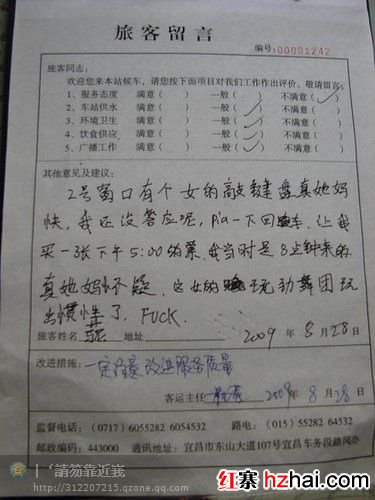 旅客留言
编号:00001242
旅客同志:
欢迎您来本站候车,请您按下面项目对我们工作作出评价,敬请留言。
1、服务态度 满意( ) 一般( ) 不满意(✓)
2、车站供水 满意( ) 一般(✓) 不满意( )
3、环境卫生 满意( ) 一般(✓) 不满意( )
4、饮食供应 满意( ) 一般(✓) 不满意( )
5、广播工作 满意( ) 一般(✓) 不满意( )
其他意见及建议:
2号窗口有个女的敲键盘真她妈
快,我还没答应呢,Pia一下回车,让我
买一张下午5:00的票,我当时是8点钟来的
真她妈怀疑,这女的玩劲舞团玩
出惯性了,FUCK.
旅客姓名 地址 2009 年 8 月 28 日
改进措施:
一定注意改进服务质量
客运主任 2009 年 8 月 28 日
监督电话:(0717)6055282 6054532 路电:(015)55282 64532
邮政编码:443000 通讯地址:宜昌市东山大道107号宜昌车务段路风办
┣╰請勿靠近嵄
http://312207215.qzone.qq.com
红寨hzhai.com